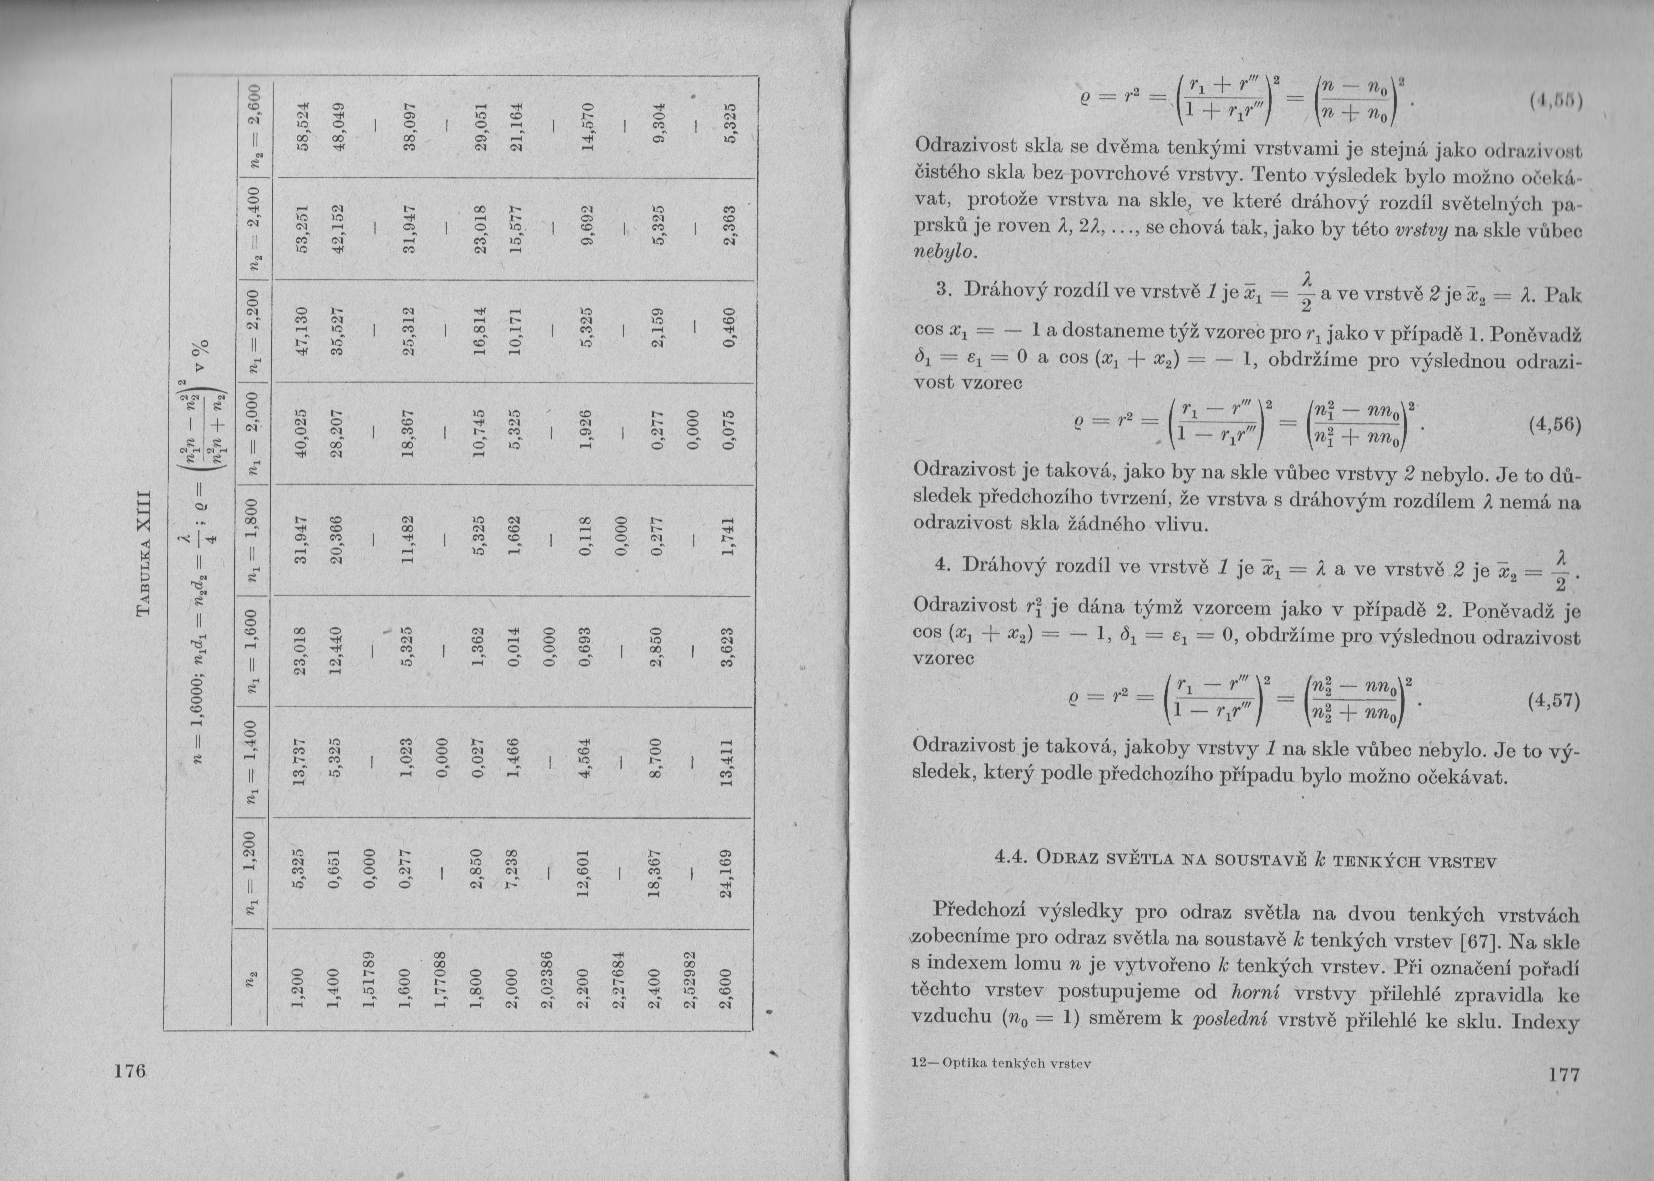 TABULKA XIII
n = 1,6000; n₁d₁ = n₂d₂ = λ/4; ϱ = ((n₁²n − n₂²)/(n₁²n + n₂))² v %
n₂ | n₁ = 1,200 | n₁ = 1,400 | n₁ = 1,600 | n₁ = 1,800 | n₁ = 2,000 | n₁ = 2,200 | n₂ = 2,400 | n₂ = 2,600
1,200 5,325 13,737 23,018 31,947 40,025 47,130 53,251 58,524
1,400 0,651 5,325 12,440 20,366 28,207 35,527 42,152 48,049
1,51789 0,000 — — — — — — —
1,600 0,277 1,023 5,325 11,482 18,367 25,312 31,947 38,097
1,77088 — 0,000 — — — — — —
1,800 2,850 0,027 1,362 5,325 10,745 16,814 23,018 29,051
2,000 7,238 1,466 0,014 1,662 5,325 10,171 15,577 21,164
2,02386 — — 0,000 — — — — —
2,200 12,601 4,564 0,693 0,118 1,926 5,325 9,692 14,570
2,27684 — — — 0,000 — — — —
2,400 18,367 8,700 2,850 0,277 0,277 2,159 5,325 9,304
2,52982 — — — — 0,000 — — —
2,600 24,169 13,411 3,623 1,741 0,075 0,460 2,363 5,325
176
ϱ = r² = ((r₁ + r‴)/(1 + r₁r‴))² = ((n − n₀)/(n + n₀))². (4,55)
Odrazivost skla se dvěma tenkými vrstvami je stejná jako odrazivost
čistého skla bez povrchové vrstvy. Tento výsledek bylo možno očeká-
vat, protože vrstva na skle, ve které dráhový rozdíl světelných pa-
prsků je roven λ, 2λ, ..., se chová tak, jako by této vrstvy na skle vůbec
nebylo.
3. Dráhový rozdíl ve vrstvě 1 je x̄₁ = λ/2 a ve vrstvě 2 je x̄₂ = λ. Pak
cos x₁ = − 1 a dostaneme týž vzorec pro r₁ jako v případě 1. Poněvadž
δ₁ = ε₁ = 0 a cos (x₁ + x₂) = − 1, obdržíme pro výslednou odrazi-
vost vzorec
ϱ = r² = ((r₁ − r‴)/(1 − r₁r‴))² = ((n₁² − nn₀)/(n₁² + nn₀))². (4,56)
Odrazivost je taková, jako by na skle vůbec vrstvy 2 nebylo. Je to dů-
sledek předchozího tvrzení, že vrstva s dráhovým rozdílem λ nemá na
odrazivost skla žádného vlivu.
4. Dráhový rozdíl ve vrstvě 1 je x̄₁ = λ a ve vrstvě 2 je x̄₂ = λ/2.
Odrazivost r₁² je dána týmž vzorcem jako v případě 2. Poněvadž je
cos (x₁ + x₂) = − 1, δ₁ = ε₁ = 0, obdržíme pro výslednou odrazivost
vzorec
ϱ = r² = ((r₁ − r‴)/(1 − r₁r‴))² = ((n₂² − nn₀)/(n₂² + nn₀))². (4,57)
Odrazivost je taková, jakoby vrstvy 1 na skle vůbec nebylo. Je to vý-
sledek, který podle předchozího případu bylo možno očekávat.
4.4. ODRAZ SVĚTLA NA SOUSTAVĚ k TENKÝCH VRSTEV
Předchozí výsledky pro odraz světla na dvou tenkých vrstvách
zobecníme pro odraz světla na soustavě k tenkých vrstev [67]. Na skle
s indexem lomu n je vytvořeno k tenkých vrstev. Při označení pořadí
těchto vrstev postupujeme od horní vrstvy přilehlé zpravidla ke
vzduchu (n₀ = 1) směrem k poslední vrstvě přilehlé ke sklu. Indexy
12—Optika tenkých vrstev
177